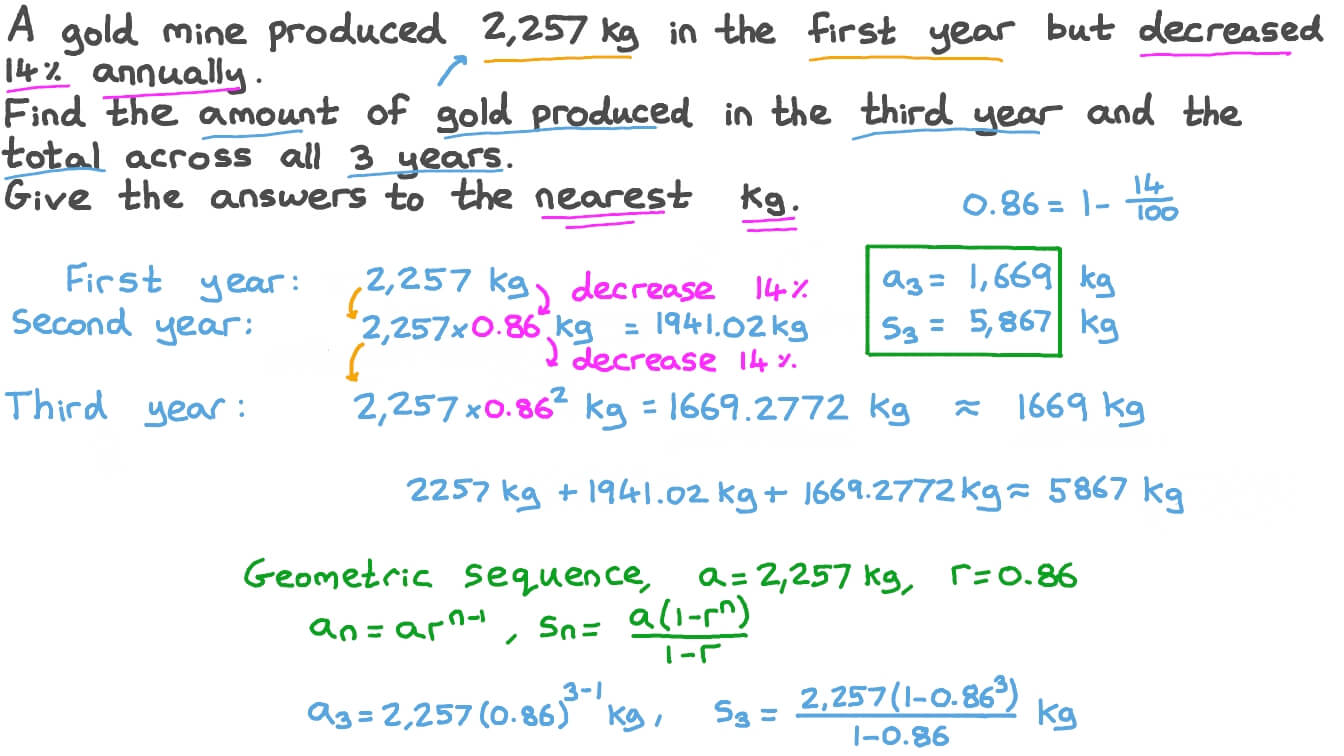 A gold mine produced 2,257 kg in the first year but decreased
14% annually.
Find the amount of gold produced in the third year and the
total across all 3 years.
Give the answers to the nearest kg.
0.86 = 1 - 14/100
First year: 2,257 kg decrease 14%
a₃ = 1,669 kg
Second year: 2,257×0.86 kg = 1941.02 kg
S₃ = 5,867 kg
decrease 14%.
Third year: 2,257×0.86² kg = 1669.2772 kg ≈ 1669 kg
2257 kg + 1941.02 kg + 1669.2772 kg ≈ 5867 kg
Geometric sequence, a = 2,257 kg, r = 0.86
aₙ = arⁿ⁻¹, Sₙ = a(1-rⁿ)/1-r
a₃ = 2,257(0.86)³⁻¹ kg, S₃ = 2,257(1-0.86³)/1-0.86 kg